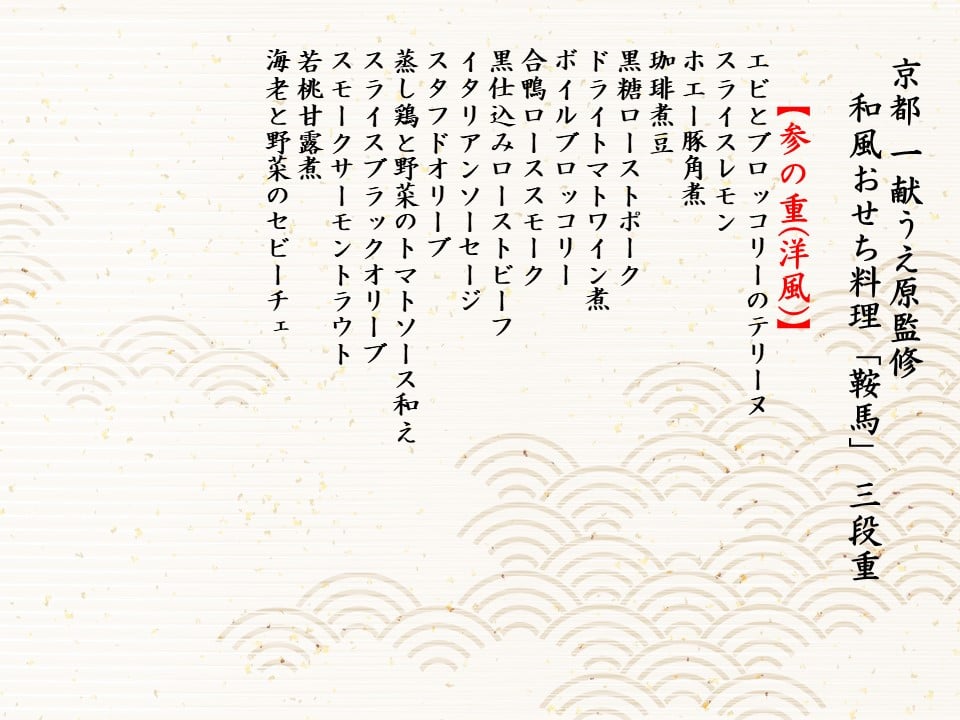 京都 一献うえ原監修
和風おせち料理「鞍馬」 三段重
【参の重(洋風)】
エビとブロッコリーのテリーヌ
スライスレモン
ホエー豚角煮
珈琲煮豆
黒糖ローストポーク
ドライトマトワイン煮
ボイルブロッコリー
合鴨ローススモーク
黒仕込みローストビーフ
イタリアンソーセージ
スタフドオリーブ
蒸し鶏と野菜のトマトソース和え
スライスブラックオリーブ
スモークサーモントラウト
若桃甘露煮
海老と野菜のセビーチェ